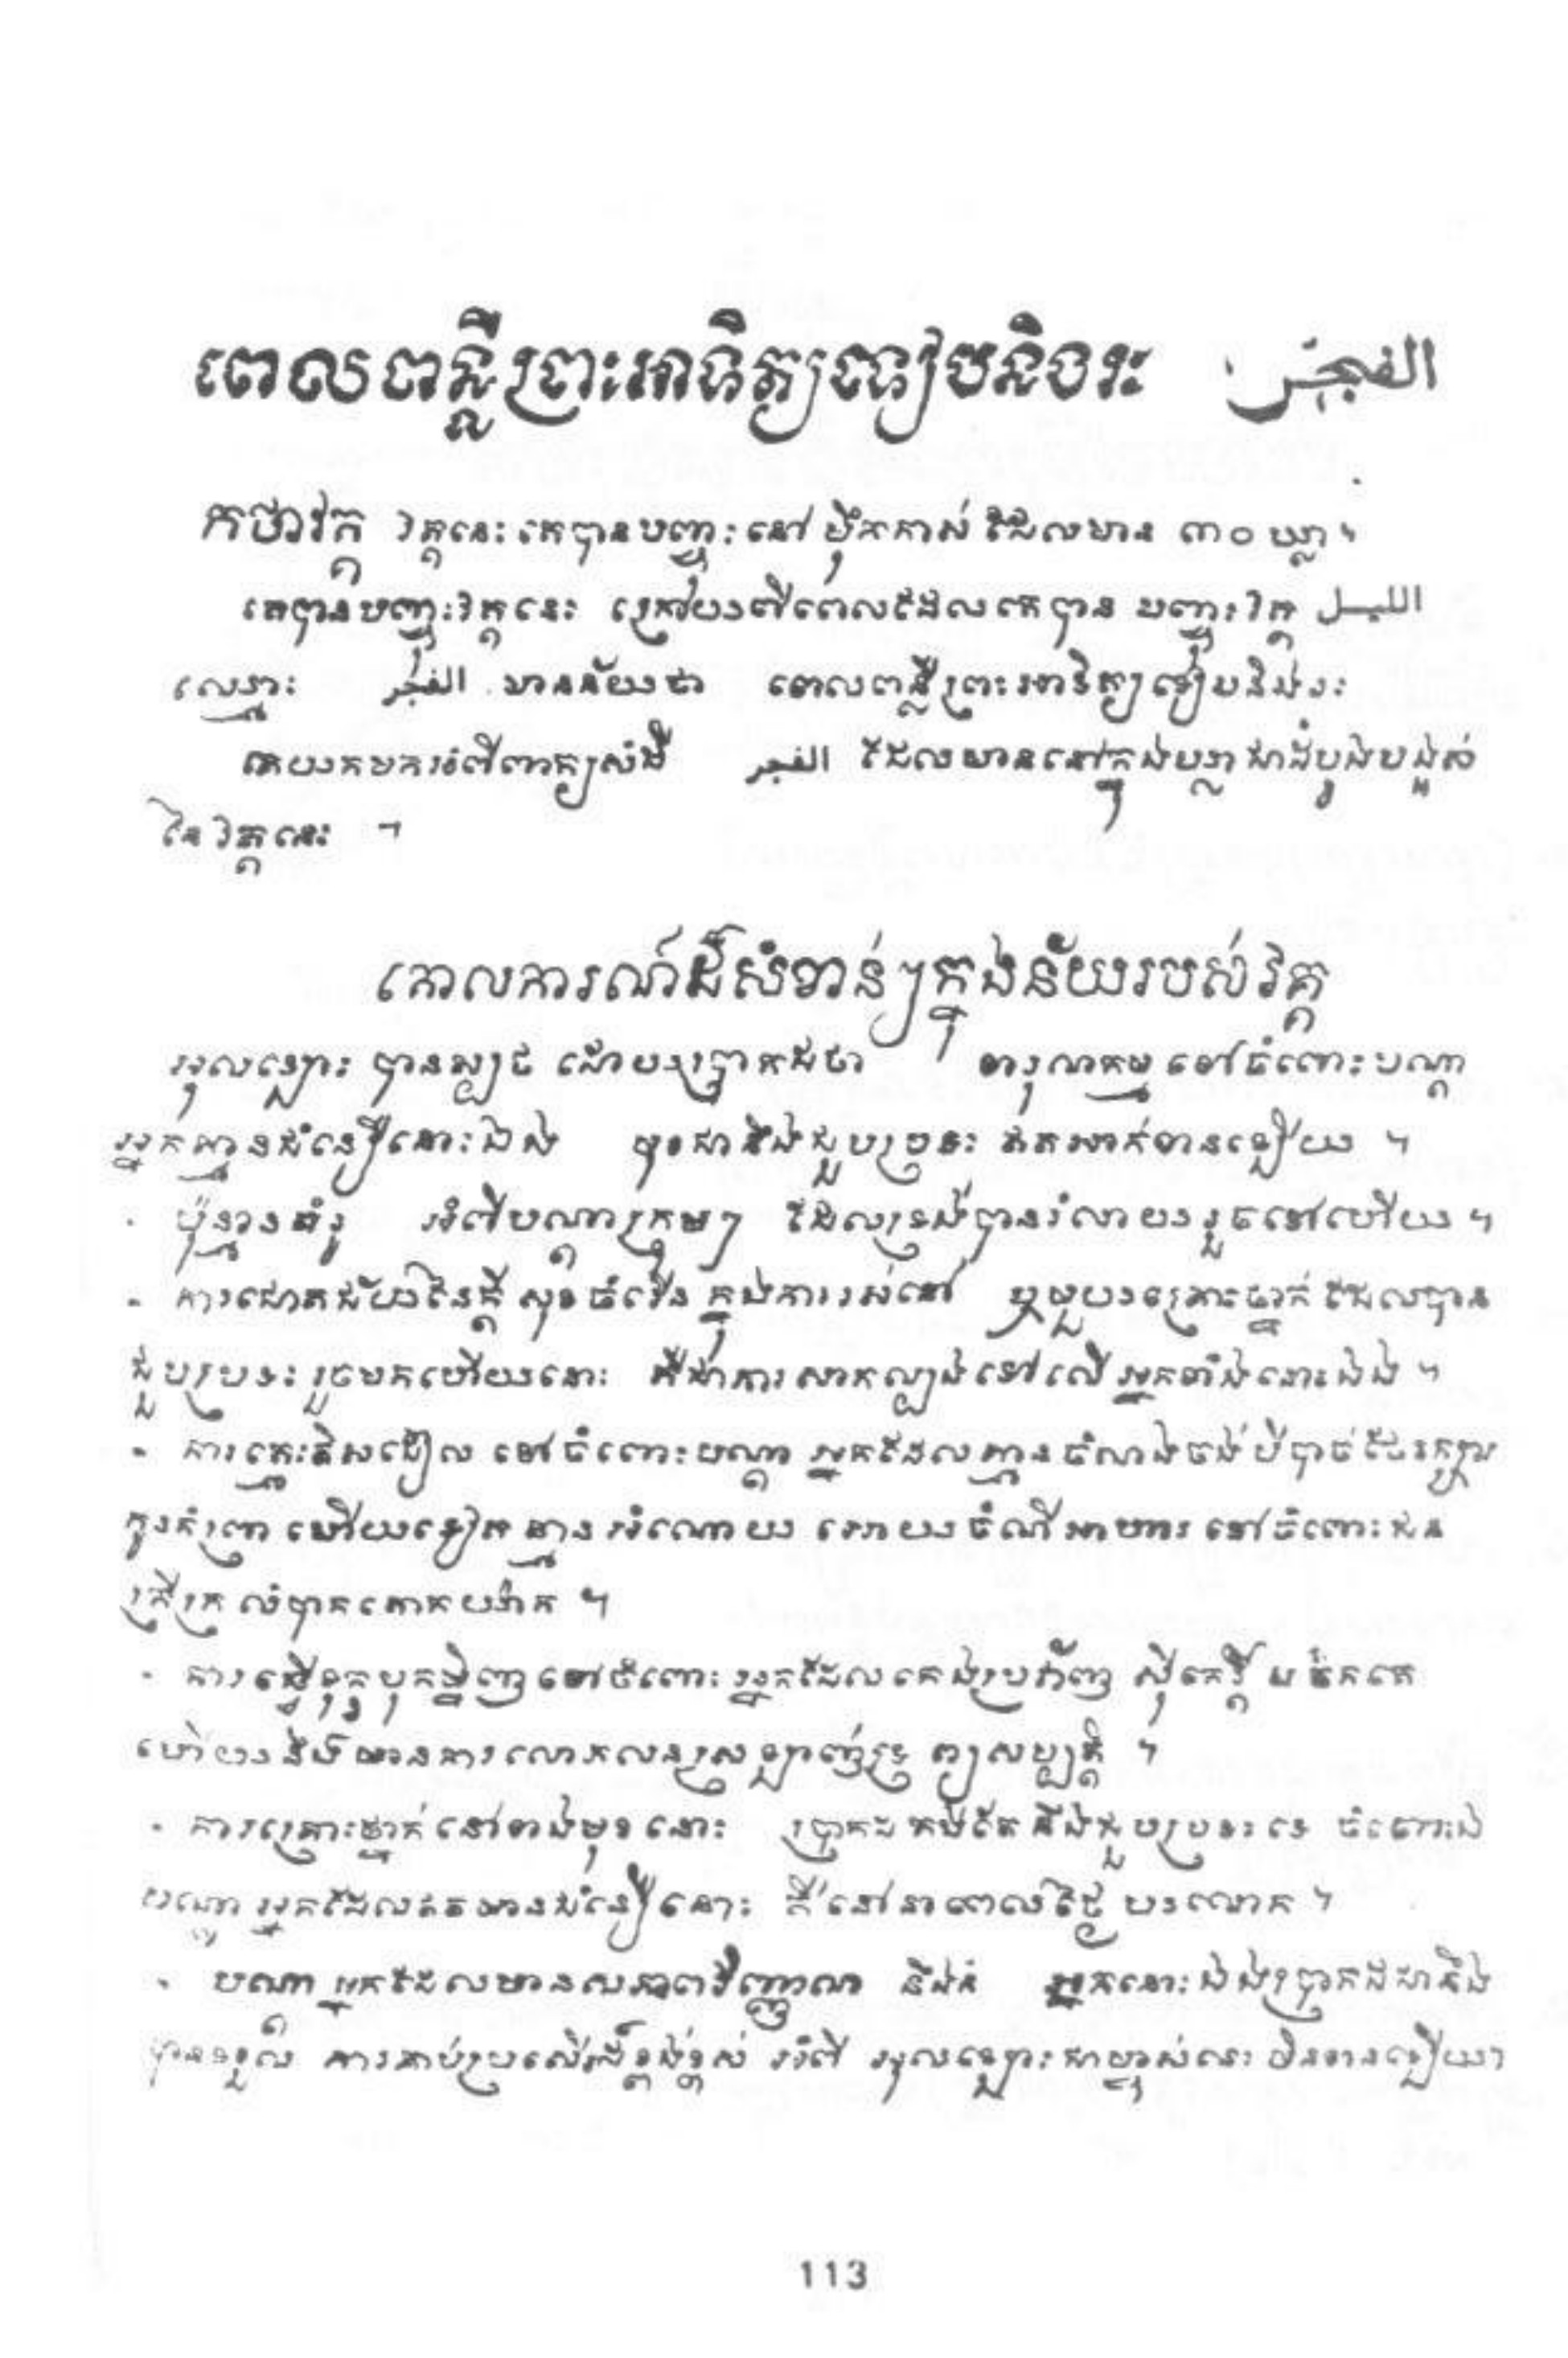 ពេលពន្លឺព្រះអាទិត្យទៀបនិងរះ الفجر
កថាវគ្គ វគ្គនេះ គេបានបញ្ចុះនៅ ម៉ឹកកាស់ ដែលមាន ៣០ ឃ្លា។
គេបានបញ្ចុះវគ្គនេះ ក្រោយពីពេលដែលគេបាន បញ្ចុះវគ្គ الليل
ឈ្មោះ الفجر មានន័យថា ពេលពន្លឺព្រះអាទិត្យទៀបនិងរះ
គេយកមកអំពីពាក្យសំដី الفجر ដែលមាននៅក្នុងឃ្លាជាដំបូងបង្អស់
នៃ វគ្គនេះ ។
គោលការណ៍ដ៏សំខាន់ៗក្នុងន័យរបស់វគ្គ
អុលឡោះ បានស្បថ ដោយប្រាកដថា ទារុណកម្ម ទៅចំពោះបណ្ដា
អ្នកគ្មានជំនឿនោះឯង មុខជានឹងជួបប្រទះ ឥតអាក់ខានឡើយ ។
- ប៉ុន្មានគំរូ អំពីបណ្ដាក្រុមៗ ដែលទ្រង់បានរំលាយរួចទៅហើយ ។
- ការជោគជ័យនៃក្ដី សុខចំរើន ក្នុងការរស់នៅ ឬមួយគ្រោះថ្នាក់ ដែលបាន
ជួបប្រទះ រួចមកហើយនោះ គឺជាការសាកល្បងទៅលើ អ្នកទាំងនោះឯង ។
- ការត្មេះតិះដៀល ទៅចំពោះបណ្ដា អ្នកដែលគ្មានចំណងចង់បីបាច់ថែរក្សា
កូនកំព្រា ហើយទៀតគ្មាន អំណោយ អោយចំណីអាហារ ទៅចំពោះជន
ក្រីក្រ លំបាកតោកយ៉ាក ។
- ការធ្វើទុក្ខបុកម្នេញទៅចំពោះ អ្នកដែលកេងប្រវ័ញ ស៊ីកេរ្តិ៍ មត៌កគេ
ហើយនិងមានការលោភលន់ស្រឡាញ់ទ្រព្យសម្បត្តិ ។
- ការគ្រោះថ្នាក់នៅខាងមុខនោះ ប្រាកដ នឹងជួបប្រទះទេ ចំពោះ
បណ្ដា អ្នកដែលឥតមានជំនឿនោះ គឺនៅនាពេលថ្ងៃ បរលោក ។
- បណ្ដា អ្នកដែលមានសភាពវិញ្ញាណ នឹងន៎ អ្នកនោះឯងប្រាកដជានឹង
បានទទួល ការរាប់ប្រសើរដ៏ខ្ពង់ខ្ពស់ អំពី អុលឡោះជាម្ចាស់ មិនខានឡើយ។
113